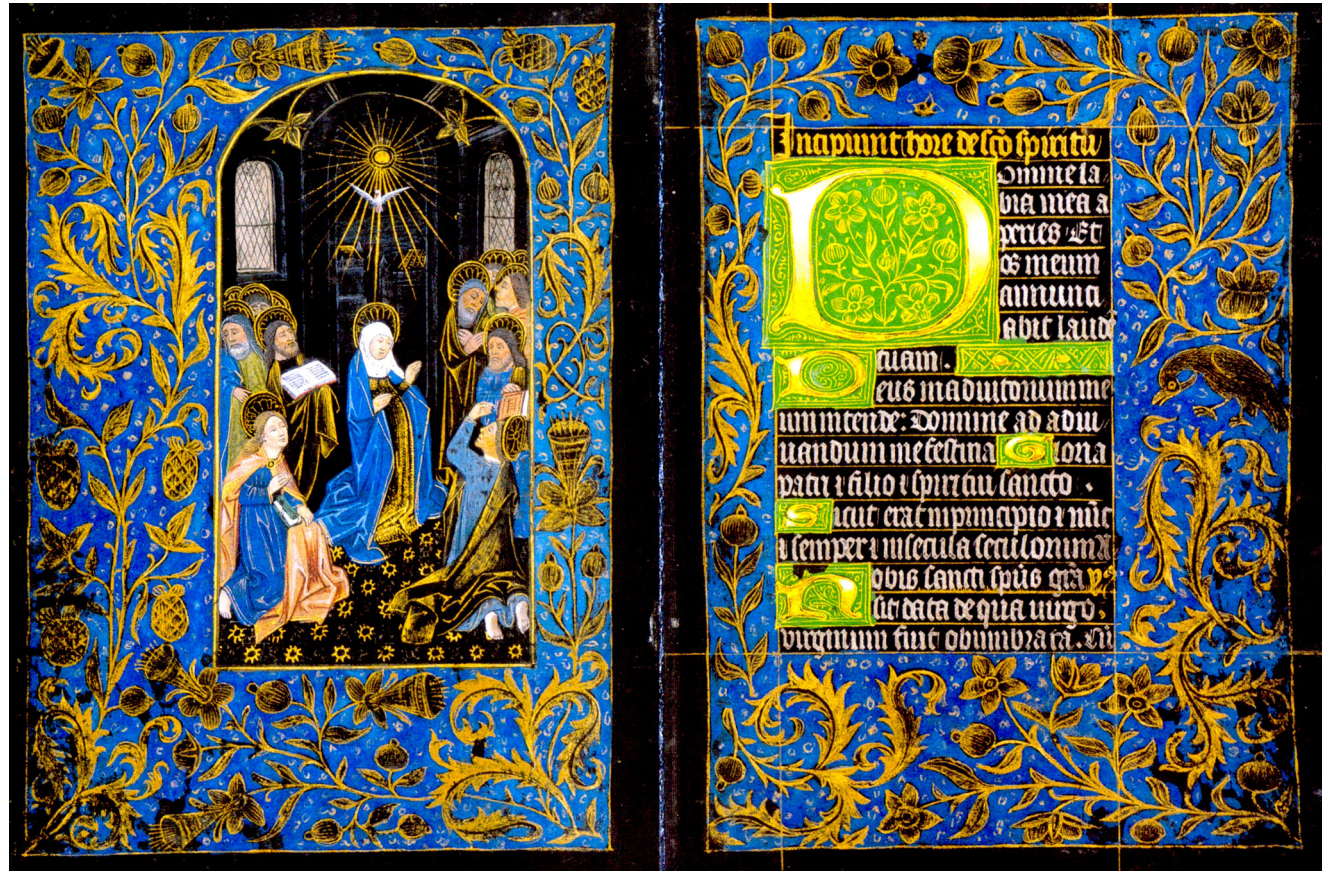 Incipiunt hore de sc̄o spiritu
Domine la
bia mea a
peries Et
os meum
annunti
abit laudē
tuam .
Deus in adiutorium me
um intende : Domine ad adiu
uandum me festina Gloria
patri ⁊ filio ⁊ spiritui sancto .
Sicut erat in principio ⁊ nūc
⁊ semper ⁊ in secula seculorum A
Nobis sancti spūs grā
sit data de qua uirgo .
virginum fuit obumbrata . Cū